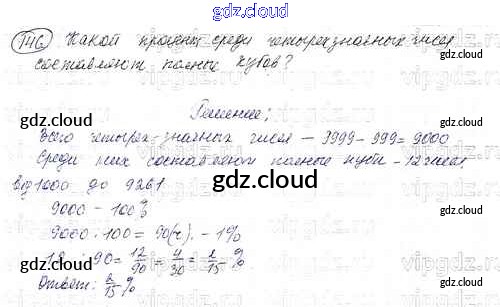 gdz.cloud
146 Какой процент среди четырехзначных чисел
составляют полные кубов?
Решение:
Всего четырех-значных чисел – 9999 – 999 = 9000
Среди них составляют полные кубы – 12 чисел,
від 1000 до 9261
gdz.cloud
9000 – 100%
9000 : 100 = 90(ч). – 1%
12 : 90 = 12/90 = 4/30 = 2/15 %
Ответ: 2/15 %
gdz.cloud